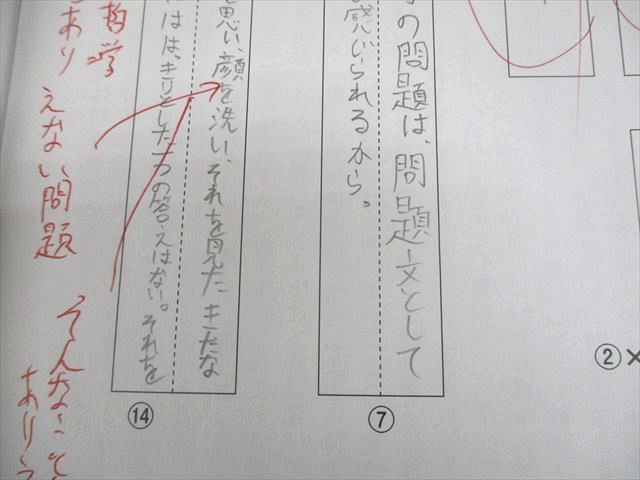 の問題は、問題文として
感じられるから。
⑦
思い、顔を洗い、それを見たきたな
はは、きりとした一つの答えはない。それを
⑭
哲学
あり
えない問題
そんなこと
ありう
②×